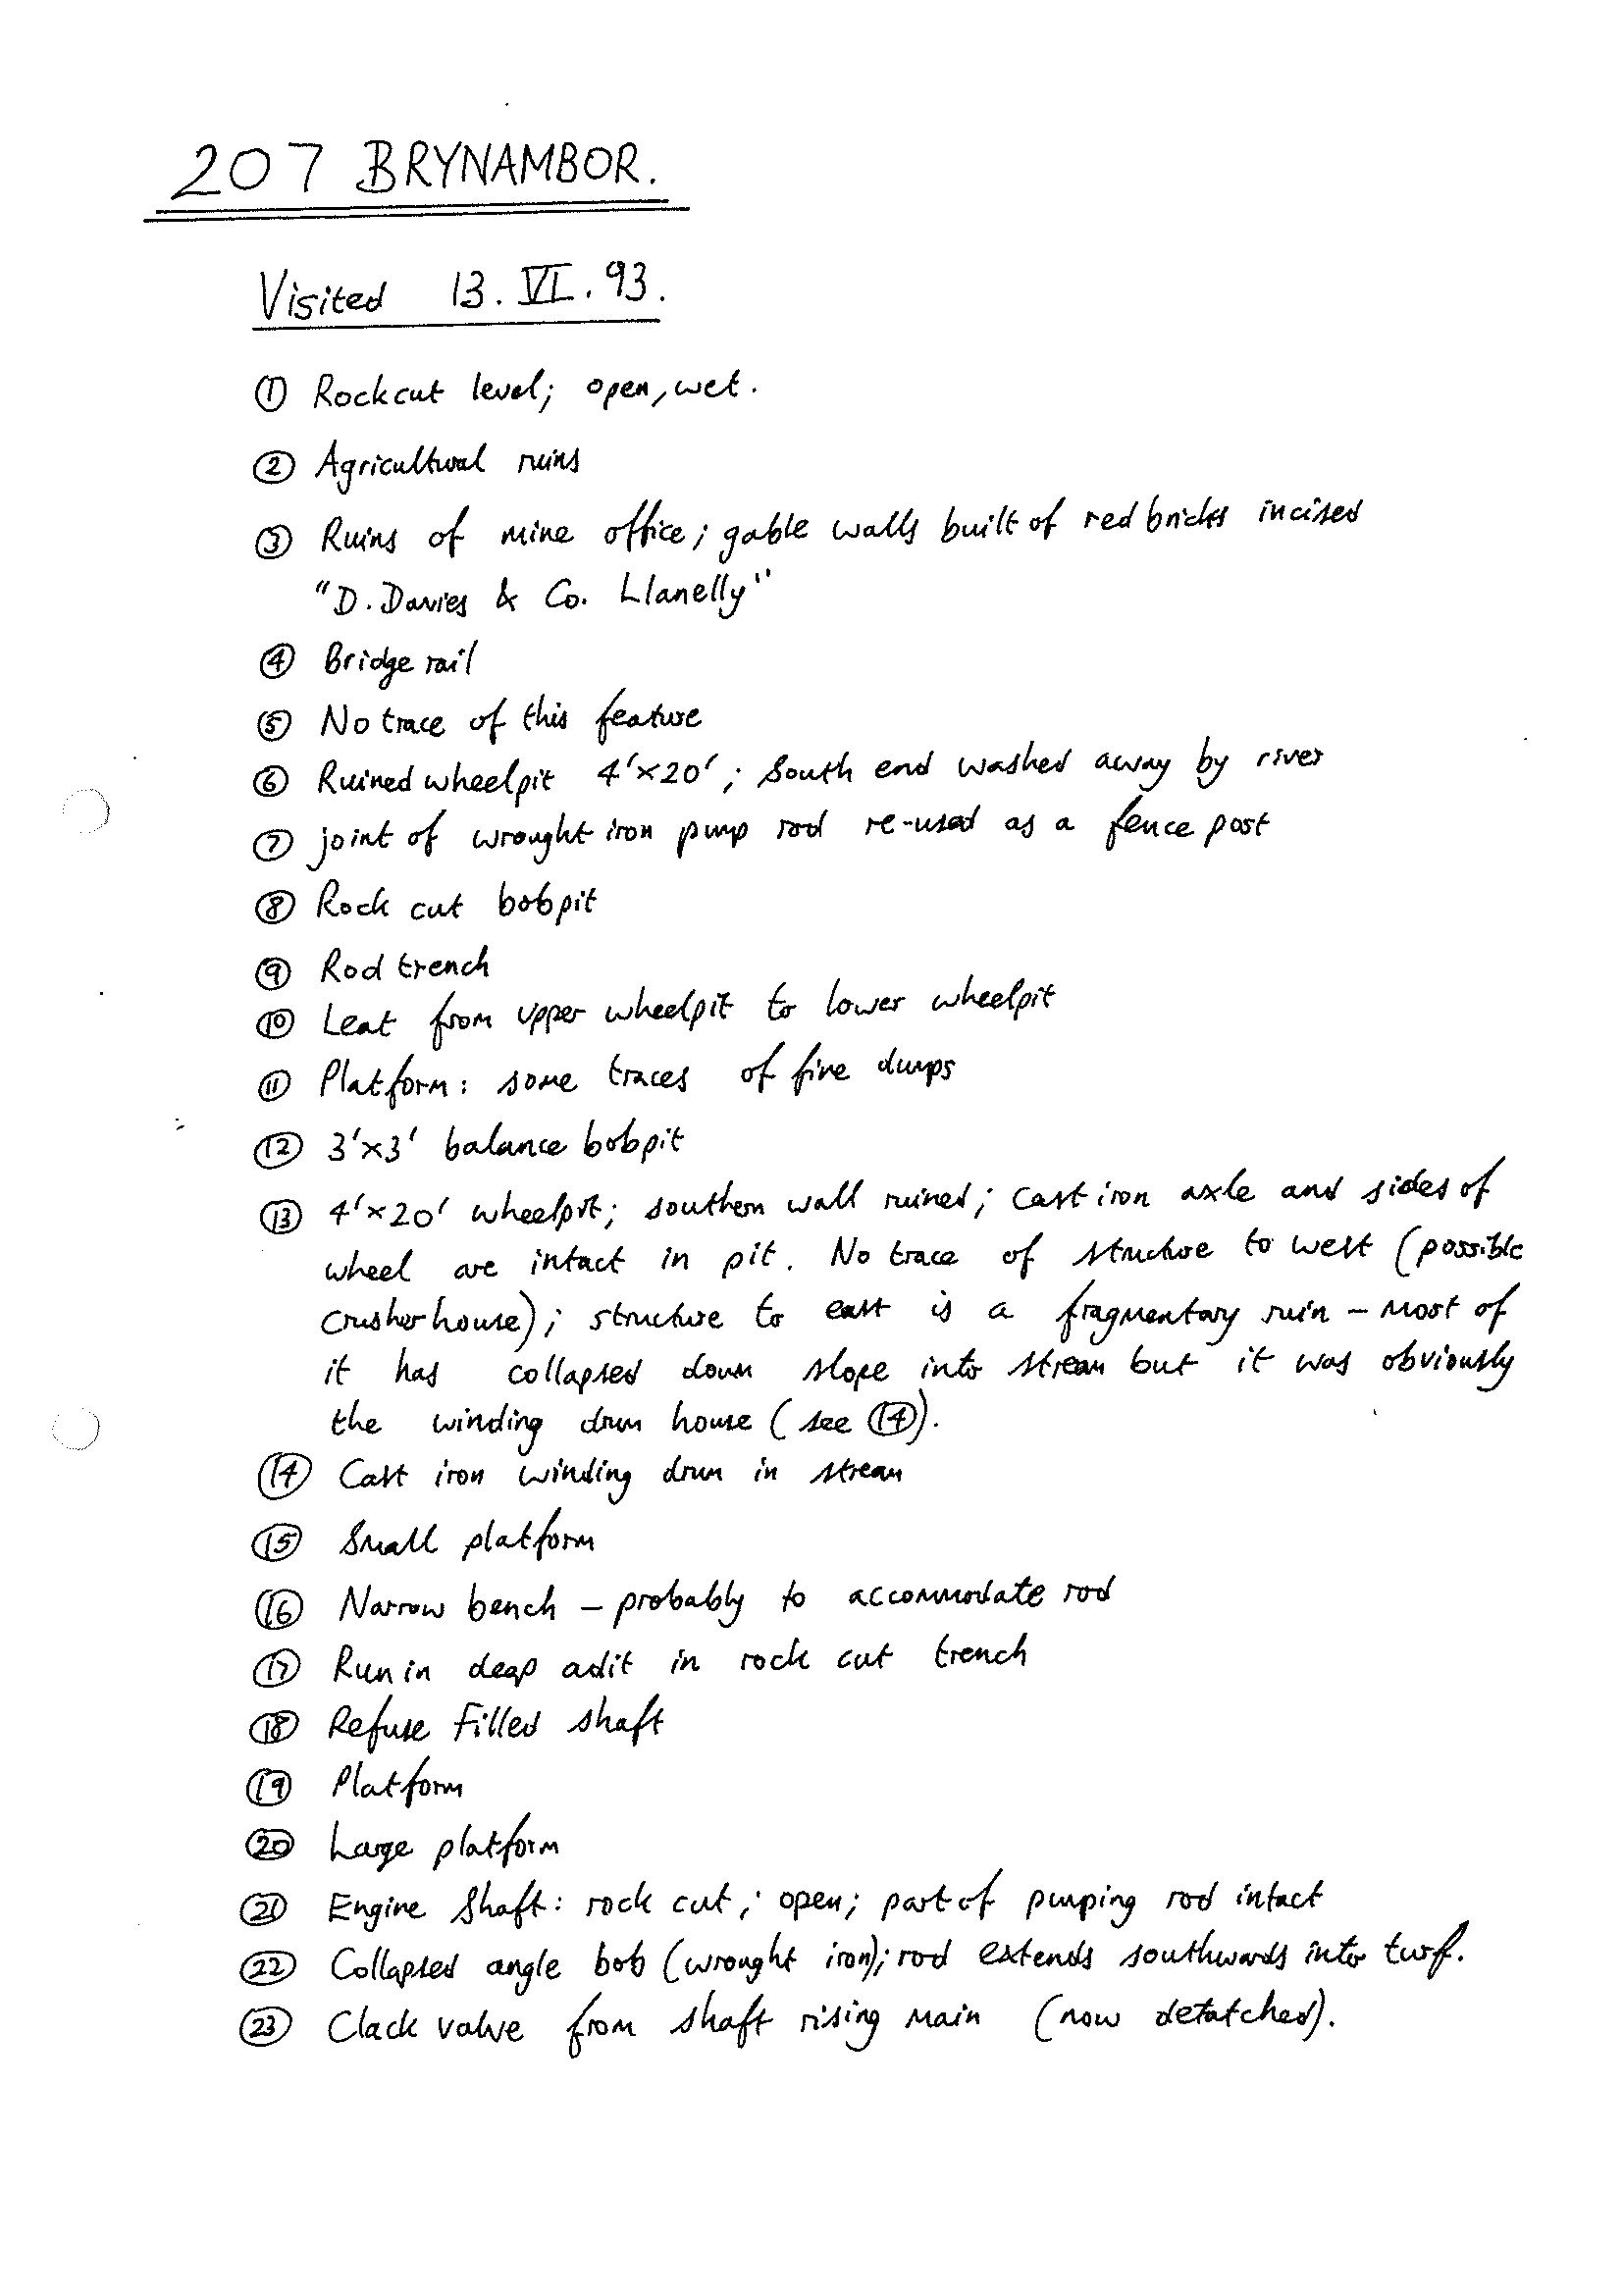 207 BRYNAMBOR.
Visited 13.VI.93.
① Rockcut level; open, wet.
② Agricultural ruins
③ Ruins of mine office; gable walls built of red bricks incised
"D. Davies & Co. Llanelly"
④ Bridge rail
⑤ No trace of this feature
⑥ Ruined wheelpit 4'×20'; South end washed away by river
⑦ joint of wrought iron pump rod re-used as a fence post
⑧ Rock cut bobpit
⑨ Rod trench
⑩ Leat from upper wheelpit to lower wheelpit
⑪ Platform: some traces of fine dumps
⑫ 3'×3' balance bobpit
⑬ 4'×20' wheelpit; southern wall ruined; cast iron axle and sides of
wheel are intact in pit. No trace of structure to west (possible
crusherhouse); structure to east is a fragmentary ruin – most of
it has collapsed down slope into stream but it was obviously
the winding drum house (see ⑭).
⑭ Cast iron winding drum in stream
⑮ Small platform
⑯ Narrow bench – probably to accommodate rod
⑰ Run in deep adit in rock cut trench
⑱ Refuse Filled shaft
⑲ Platform
⑳ Large platform
㉑ Engine Shaft: rock cut; open; part of pumping rod intact
㉒ Collapsed angle bob (wrought iron); rod extends southwards into turf.
㉓ Clack valve from shaft rising main (now detatched).